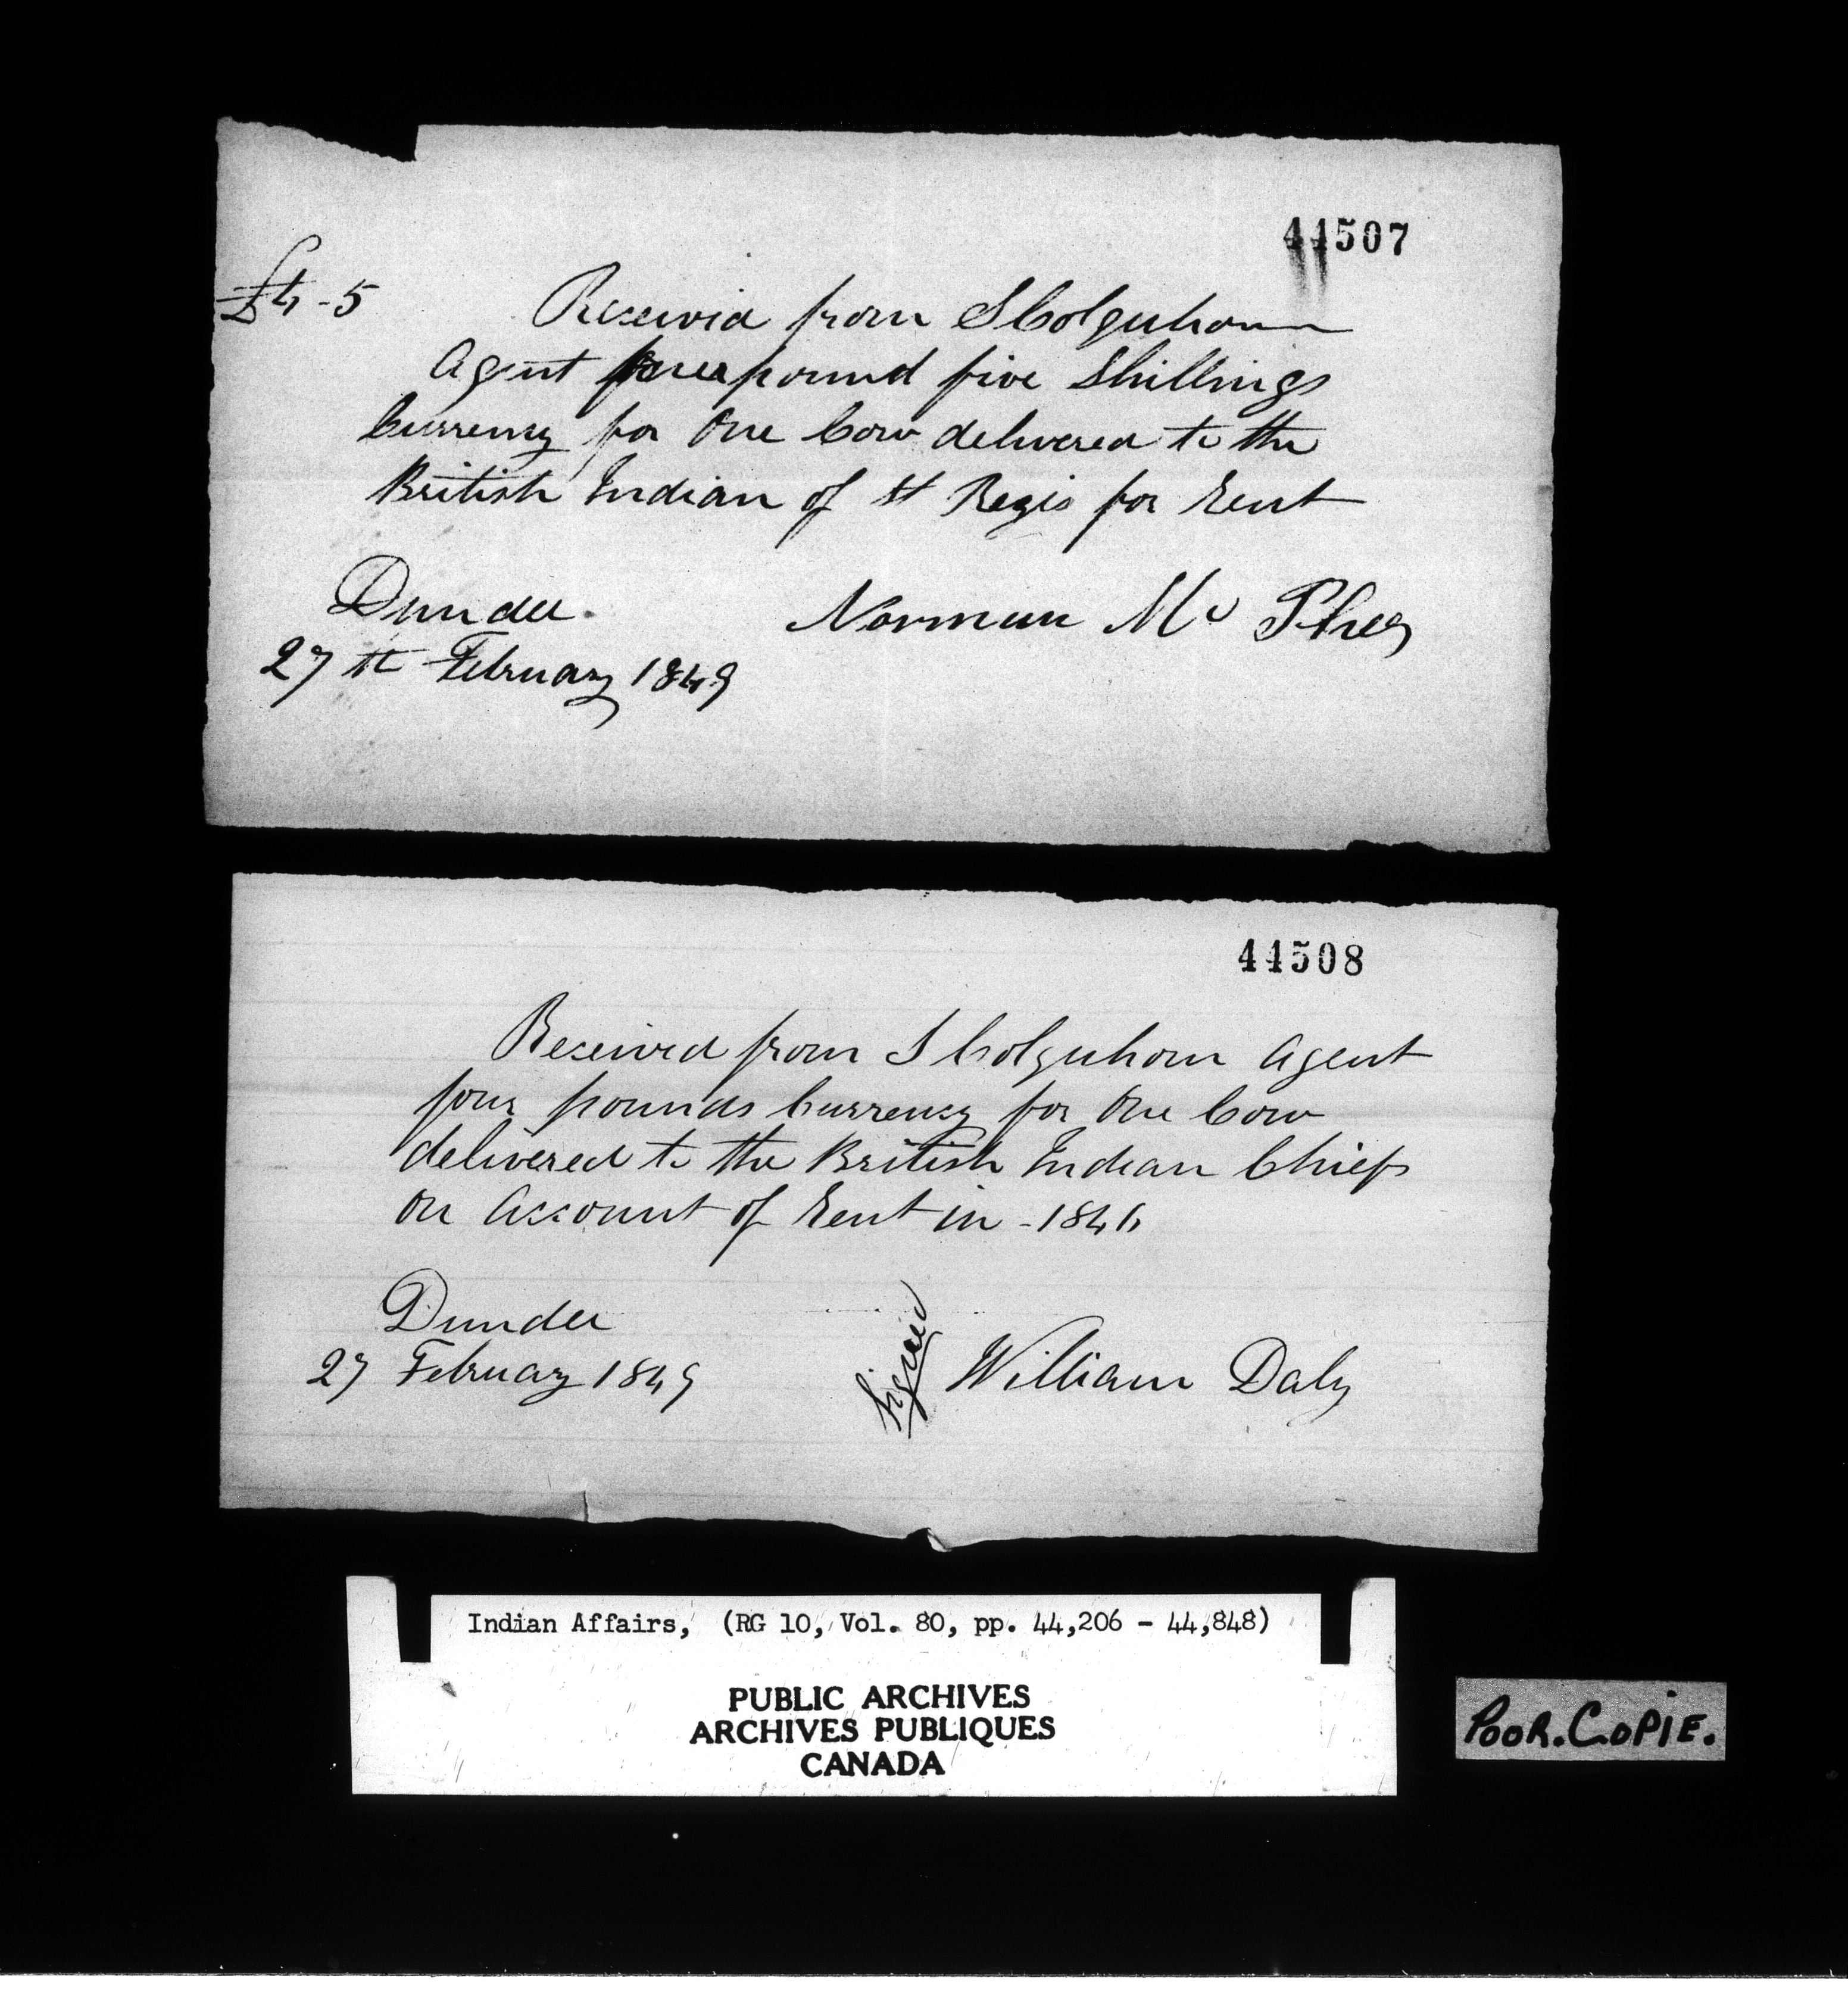 44507
£4-5
Received from S Colquhoun
Agent four pound five Shillings
Currency for One Cow delivered to the
British Indian of St Regis for Rent
Dundee
Norman Mc Phee
27th February 1849
44508
Received from S Colquhoun Agent
four pounds Currency for One Cow
delivered to the British Indian Chiefs
on Account of Rent in - 184
Dundee
27 February 1849
Signed William Daly
Indian Affairs, (RG 10, Vol. 80, pp. 44,206 - 44,848)
PUBLIC ARCHIVES
ARCHIVES PUBLIQUES
CANADA
POOR.COPIE.